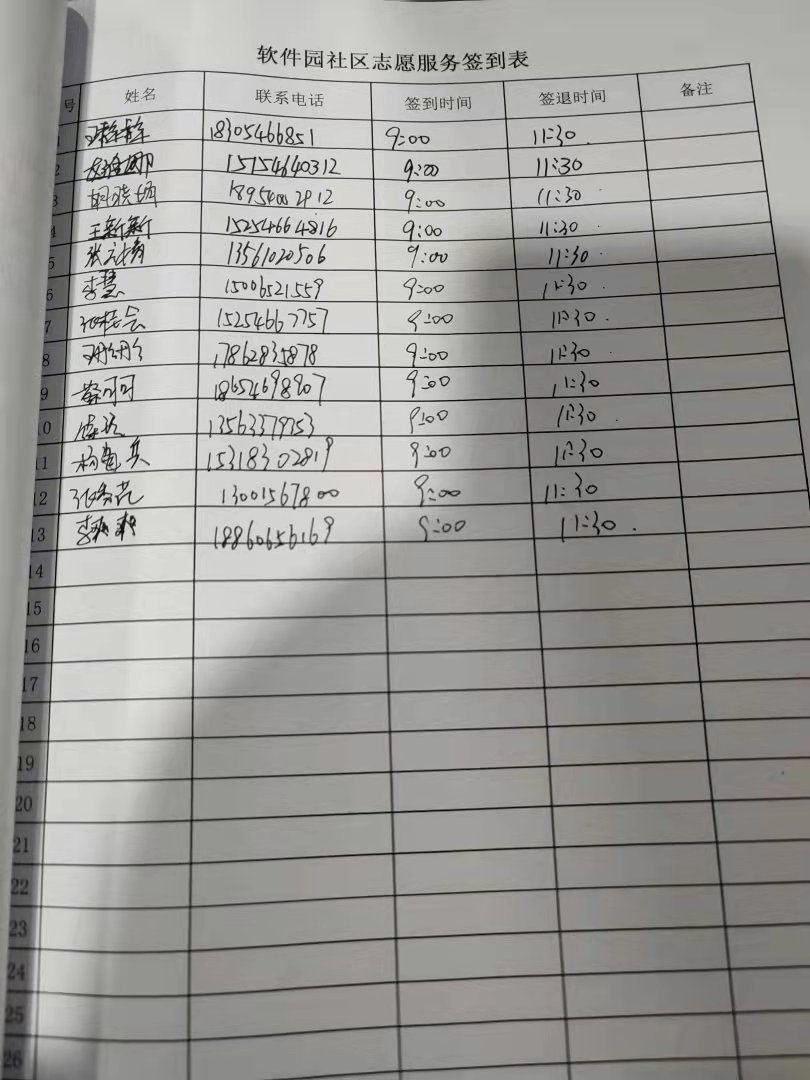 软件园社区志愿服务签到表
号 姓名 联系电话 签到时间 签退时间 备注
1 18305466851 9:00 11:30
2 15154640312 9:00 11:30
3 18954002912 9:00 11:30
4 王新新 15254664816 9:00 11:30
5 13561020506 9:00 11:30
6 李慧 15006521559 9:00 11:30
7 15254667757 9:00 11:30
8 17862835878 9:00 11:30
9 蔡可可 18654698907 9:00 11:30
10 13563379353 9:00 11:30
11 15318302819 9:00 11:30
12 13001567800 9:00 11:30
13 李爽爽 18860656169 9:00 11:30
14
15
16
17
18
19
20
21
22
23
24
25
26